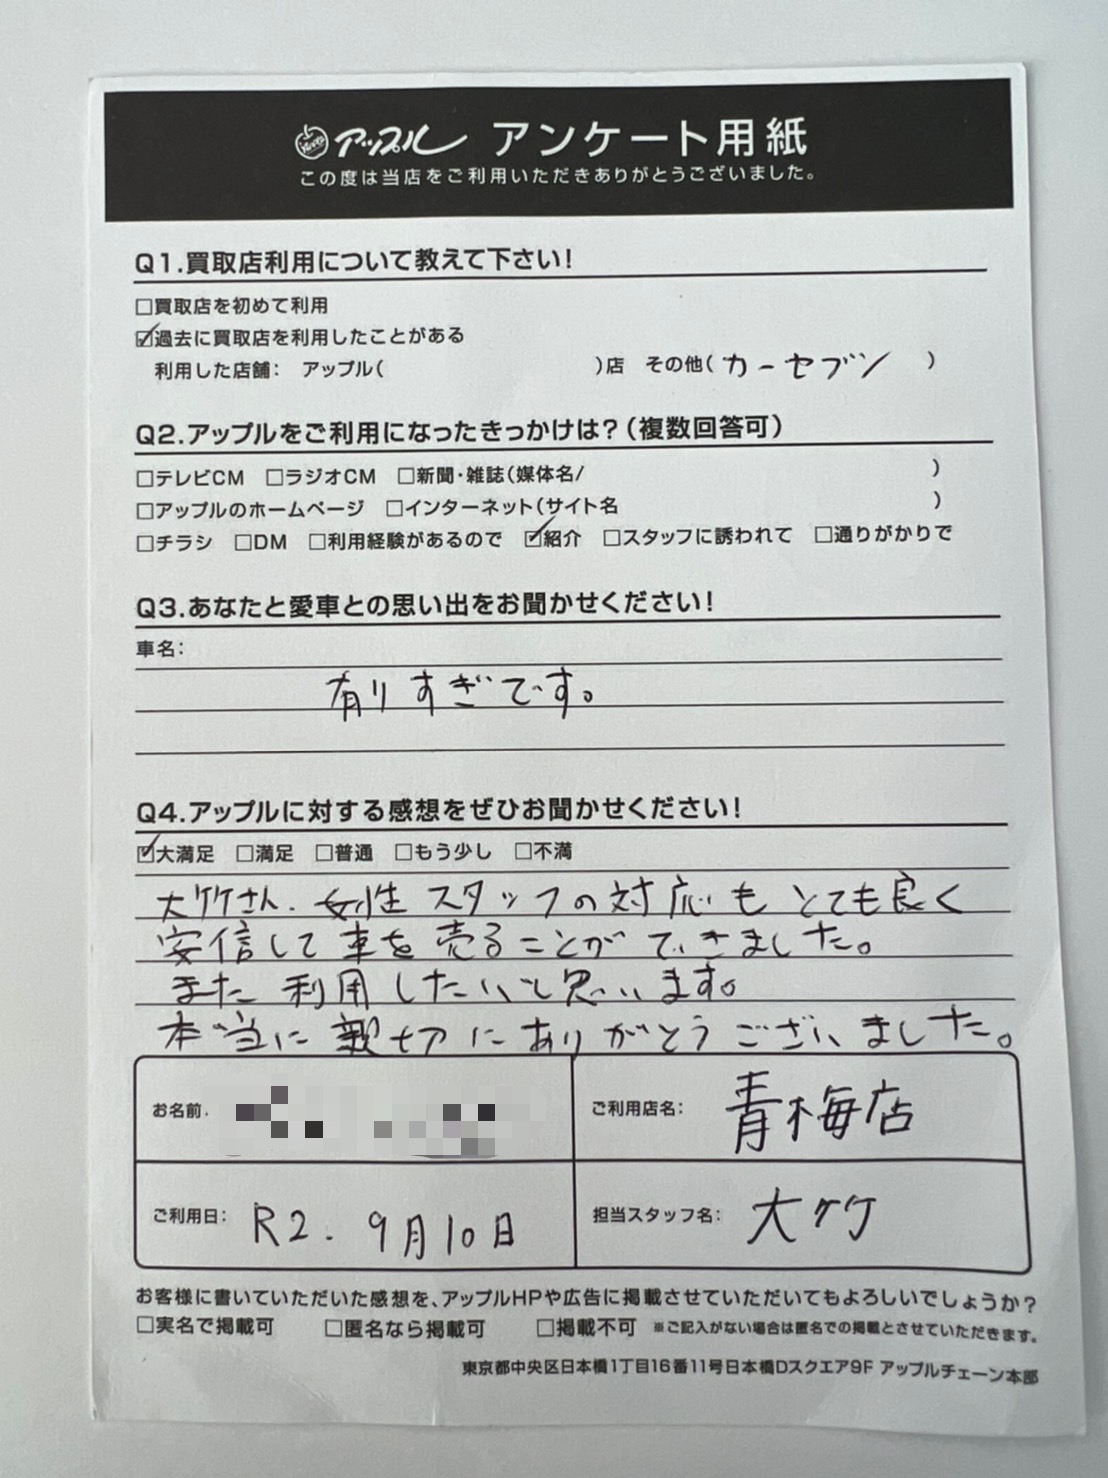 アップル アンケート用紙
この度は当店をご利用いただきありがとうございました。
Q1.買取店利用について教えて下さい!
□買取店を初めて利用
☑過去に買取店を利用したことがある
利用した店舗: アップル( )店 その他( カーセブン )
Q2.アップルをご利用になったきっかけは?(複数回答可)
□テレビCM □ラジオCM □新聞・雑誌(媒体名/ )
□アップルのホームページ □インターネット(サイト名 )
□チラシ □DM □利用経験があるので ☑紹介 □スタッフに誘われて □通りがかりで
Q3.あなたと愛車との思い出をお聞かせください!
車名:
有りすぎです。
Q4.アップルに対する感想をぜひお聞かせください!
☑大満足 □満足 □普通 □もう少し □不満
大竹さん、女性スタッフの対応もとても良く
安信して車を売ることができました。
また利用したいと思います。
本当に親切にありがとうございました。
お名前. ご利用店名: 青梅店
ご利用日: R2. 9月10日 担当スタッフ名: 大竹
お客様に書いていただいた感想を、アップルHPや広告に掲載させていただいてもよろしいでしょうか?
□実名で掲載可 □匿名なら掲載可 □掲載不可 ※ご記入がない場合は匿名での掲載とさせていただきます。
東京都中央区日本橋1丁目16番11号日本橋Dスクエア9F アップルチェーン本部